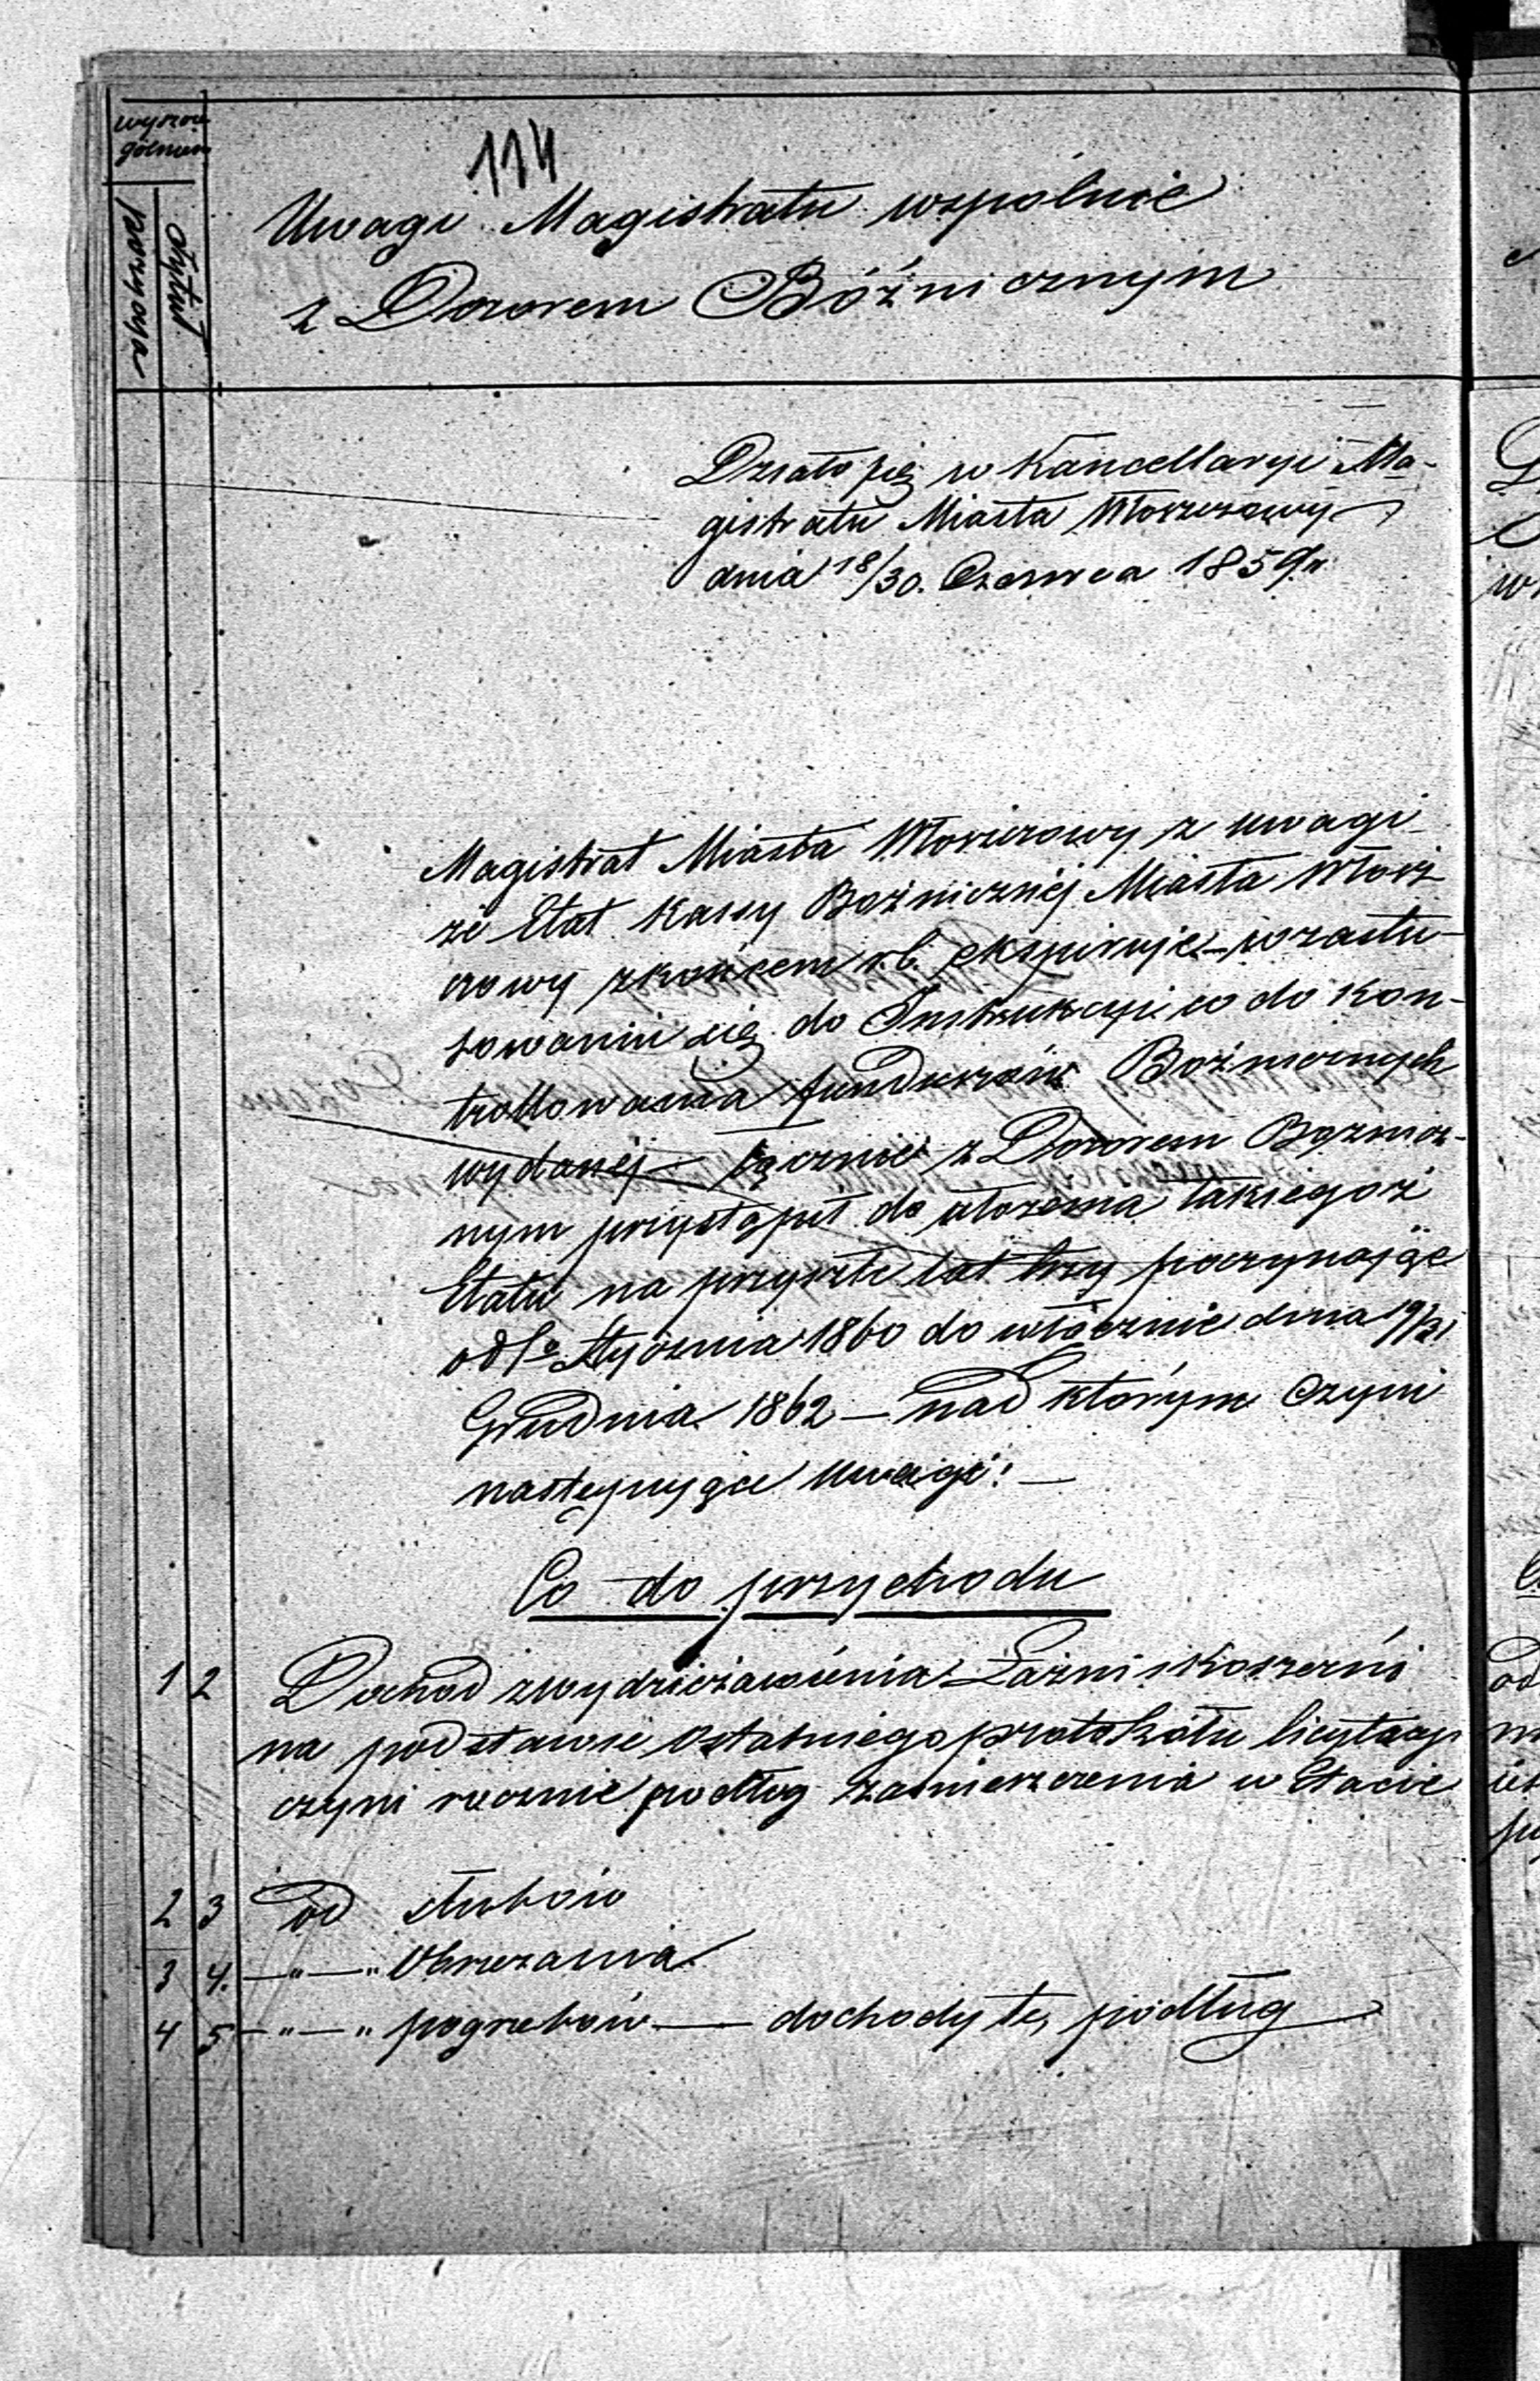 wyszcze
gólnien
pozycya
tytuł
114
Uwagi Magistratu wspólnie
z Dozorem Bóżnicznym
Działo się w Kancellaryi Ma-
gistratu Miasta Włoszczowy
dnia 18/30. Czerwca 1859 r
Magistrat Miasta Włoszczowy z uwagi
że Etat Kassy Bóżnicznéj Miasta Włosz
czowy z końcem r.b. ekspiruje w zastó-
sowaniu się do Instrukcyi co do Kon-
trollowania funduszów Bóżnicznych
wydanéj — łącznie z Dozorem Bóżnicz-
nym przystąpił do ułożenia takiegoż
Etatu na przyszłe lat trzy poczynając
od 1o Stycznia 1860 do włącznie dnia 19/31
Grudnia 1862 — nad którym czyni
następujące uwagi: —
Co do przychodu
1 2 Dochód z wydzierżawienia Łaźni i Koszerni
na podstawie ostatniego protokółu licytacyi
czyni rocznie podług zamieszczenia w Etacie
2 3 od ślubów
3 4. —"—" Obrzezania
4 5 —"—" pogrzebów — dochody te, podług